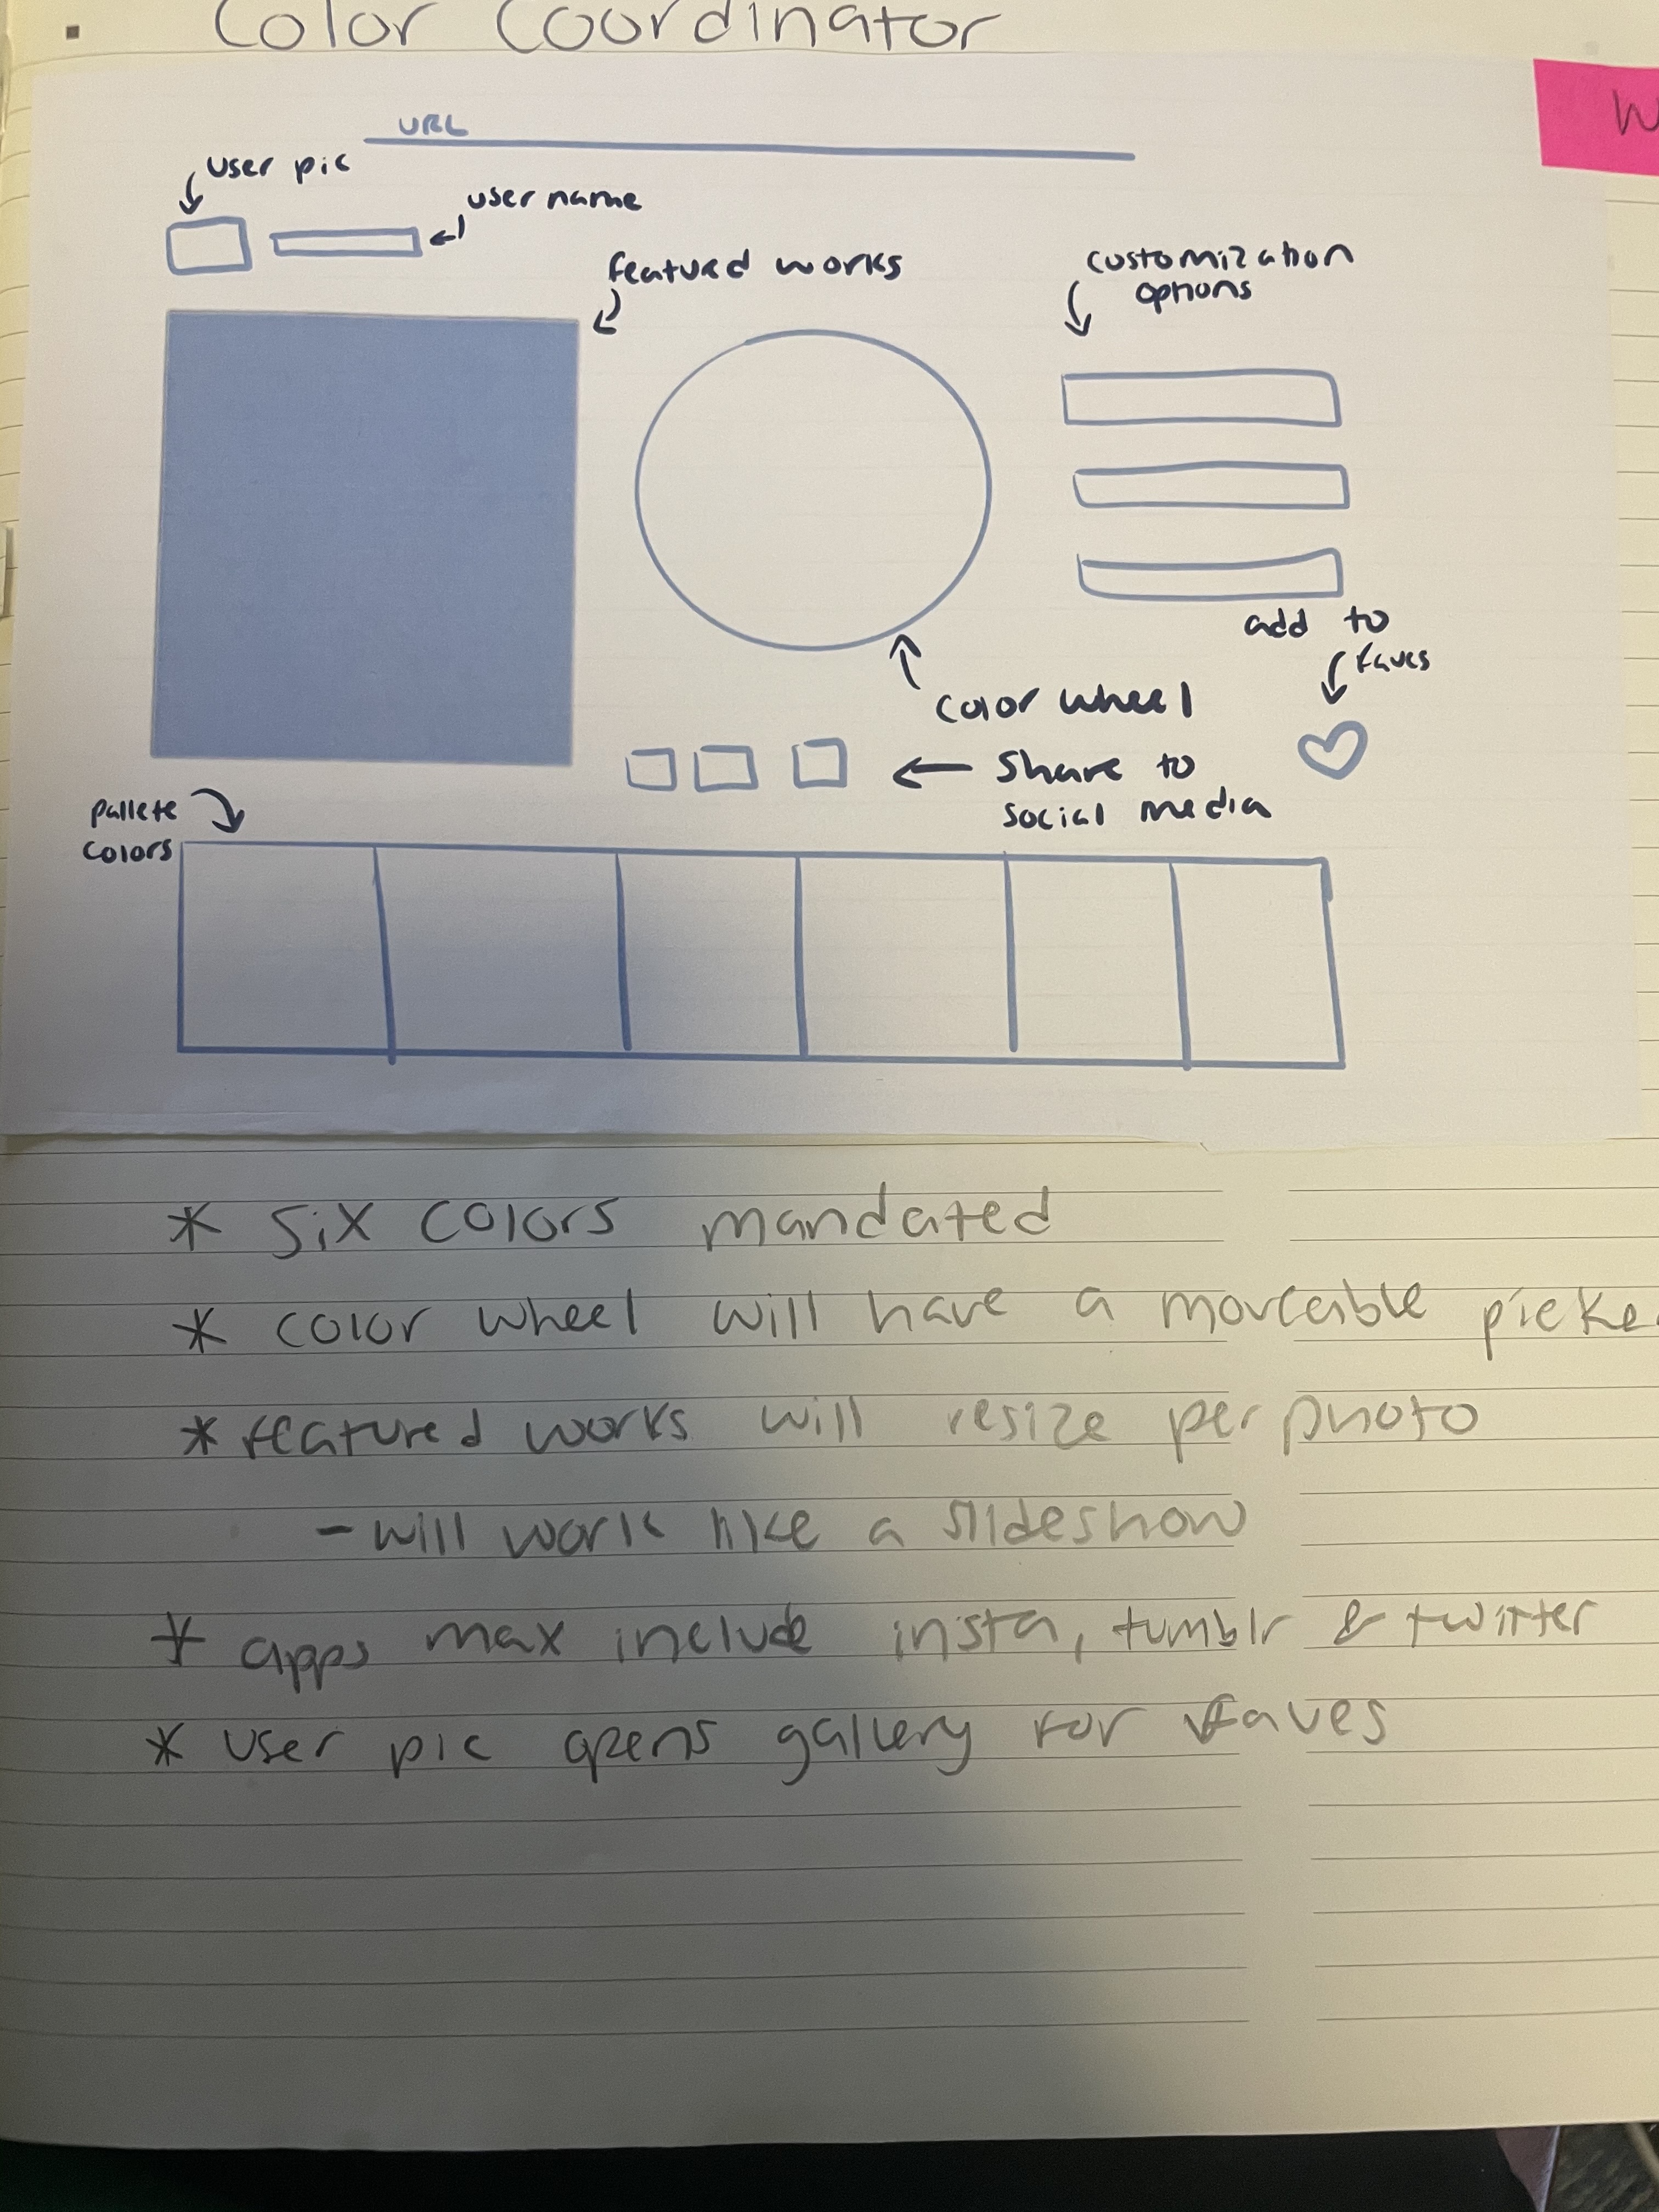 . Color Coordinator
W
URL
user pic
user name
featured works
customization
options
add to
faves
color wheel
share to
social media
pallete
colors
* six colors mandated
* color wheel will have a moveable picke
* featured works will resize per photo
- will work like a slideshow
* apps max include insta, tumblr & twitter
* user pic opens gallery for faves